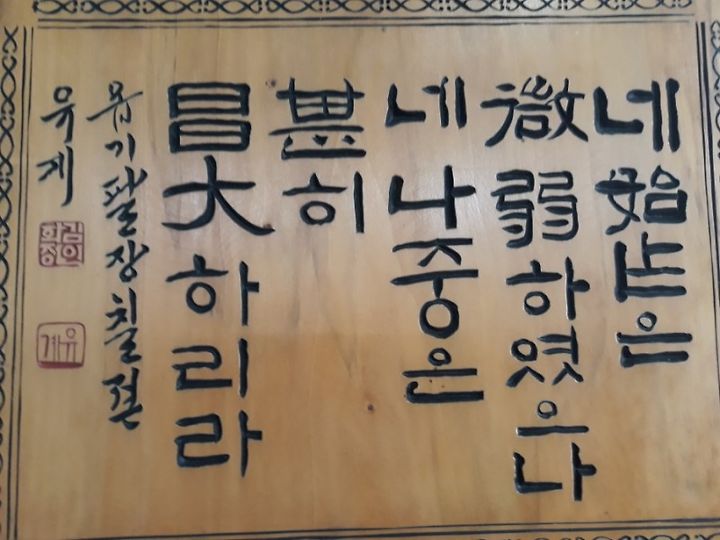 네 始作은
微弱하였으나
네 나중은
甚히
昌大하리라
욥기 팔장 칠절
유계